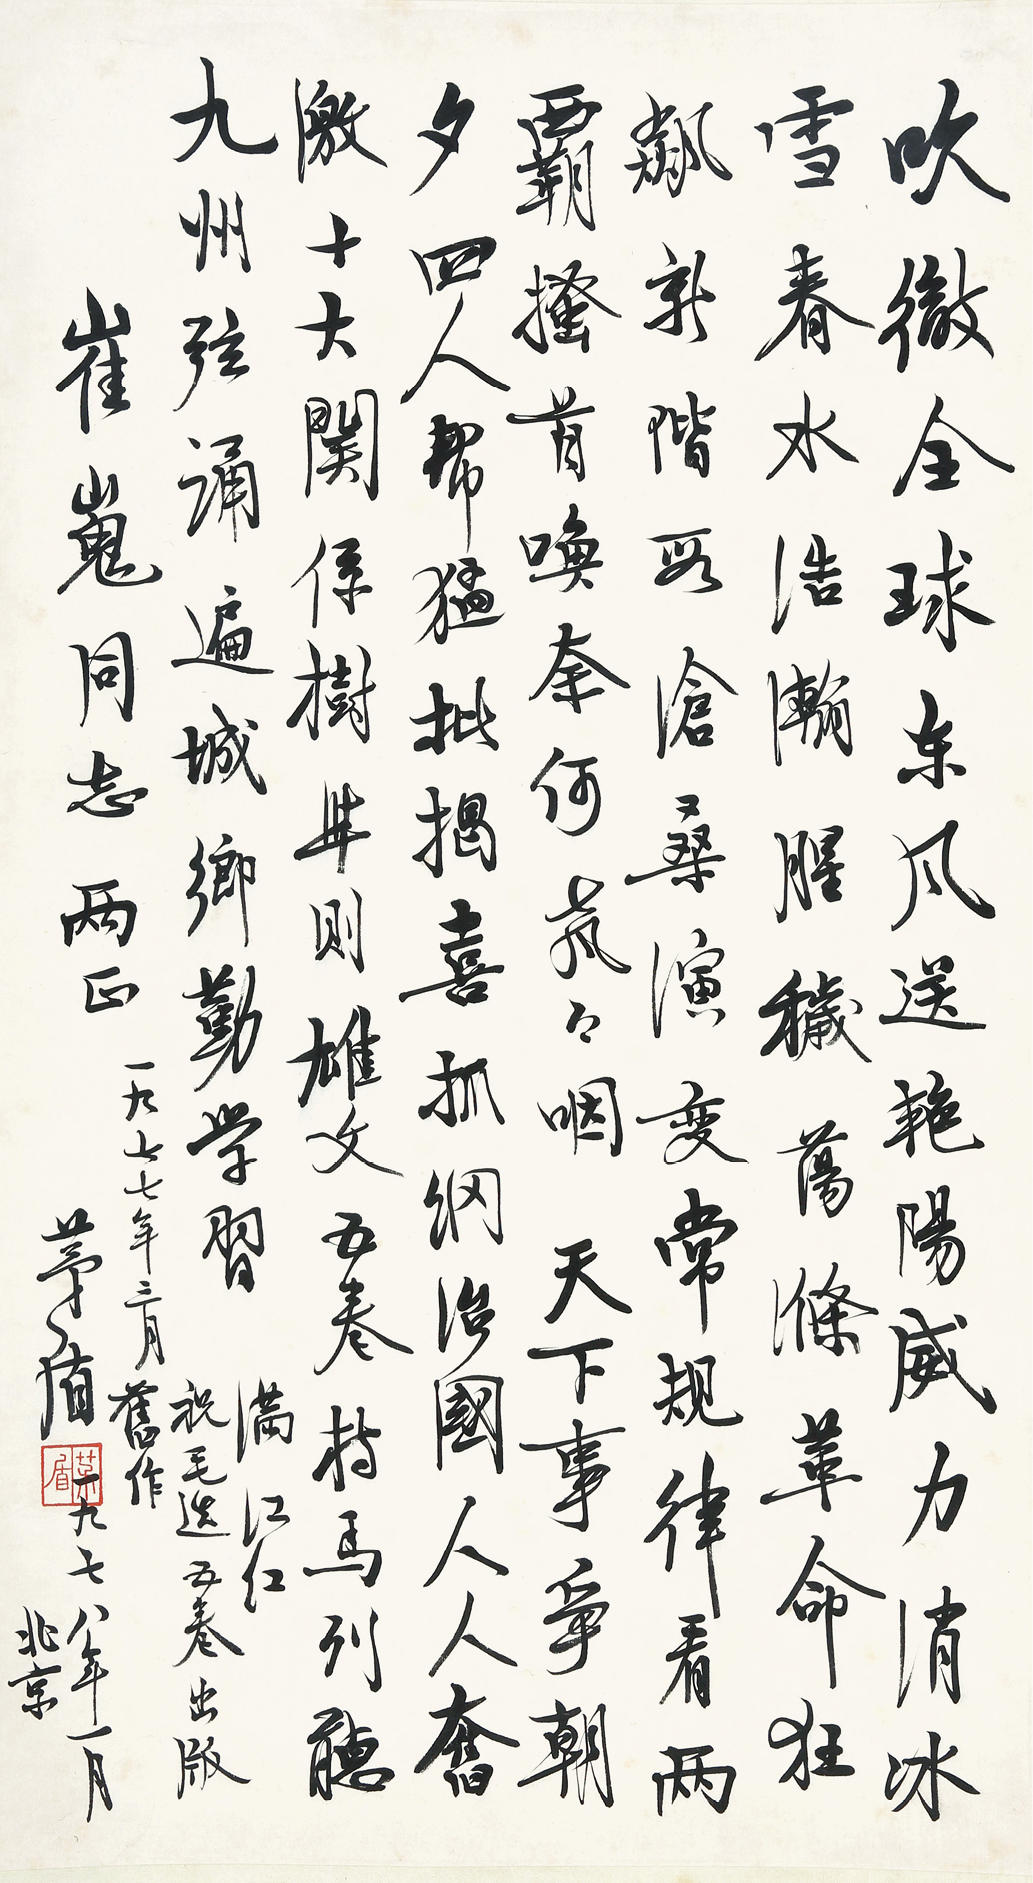 吹徹全球东风送艳陽威力消冰
雪春水浩瀚腥穢蕩滌革命狂
飆新階段滄桑演变常规律看两
霸搔首唤奈何蕉々咽天下事爭朝
夕四人帮猛批揭喜抓纲治國人人奮
激十大関係樹準则雄文五卷持馬列聽
九州弦誦遍城鄉勤学習
满江红
祝毛选五卷出版
一九七七年三月
舊作
崔嵬同志两正
茅盾
茅盾
一九七八年一月
北京